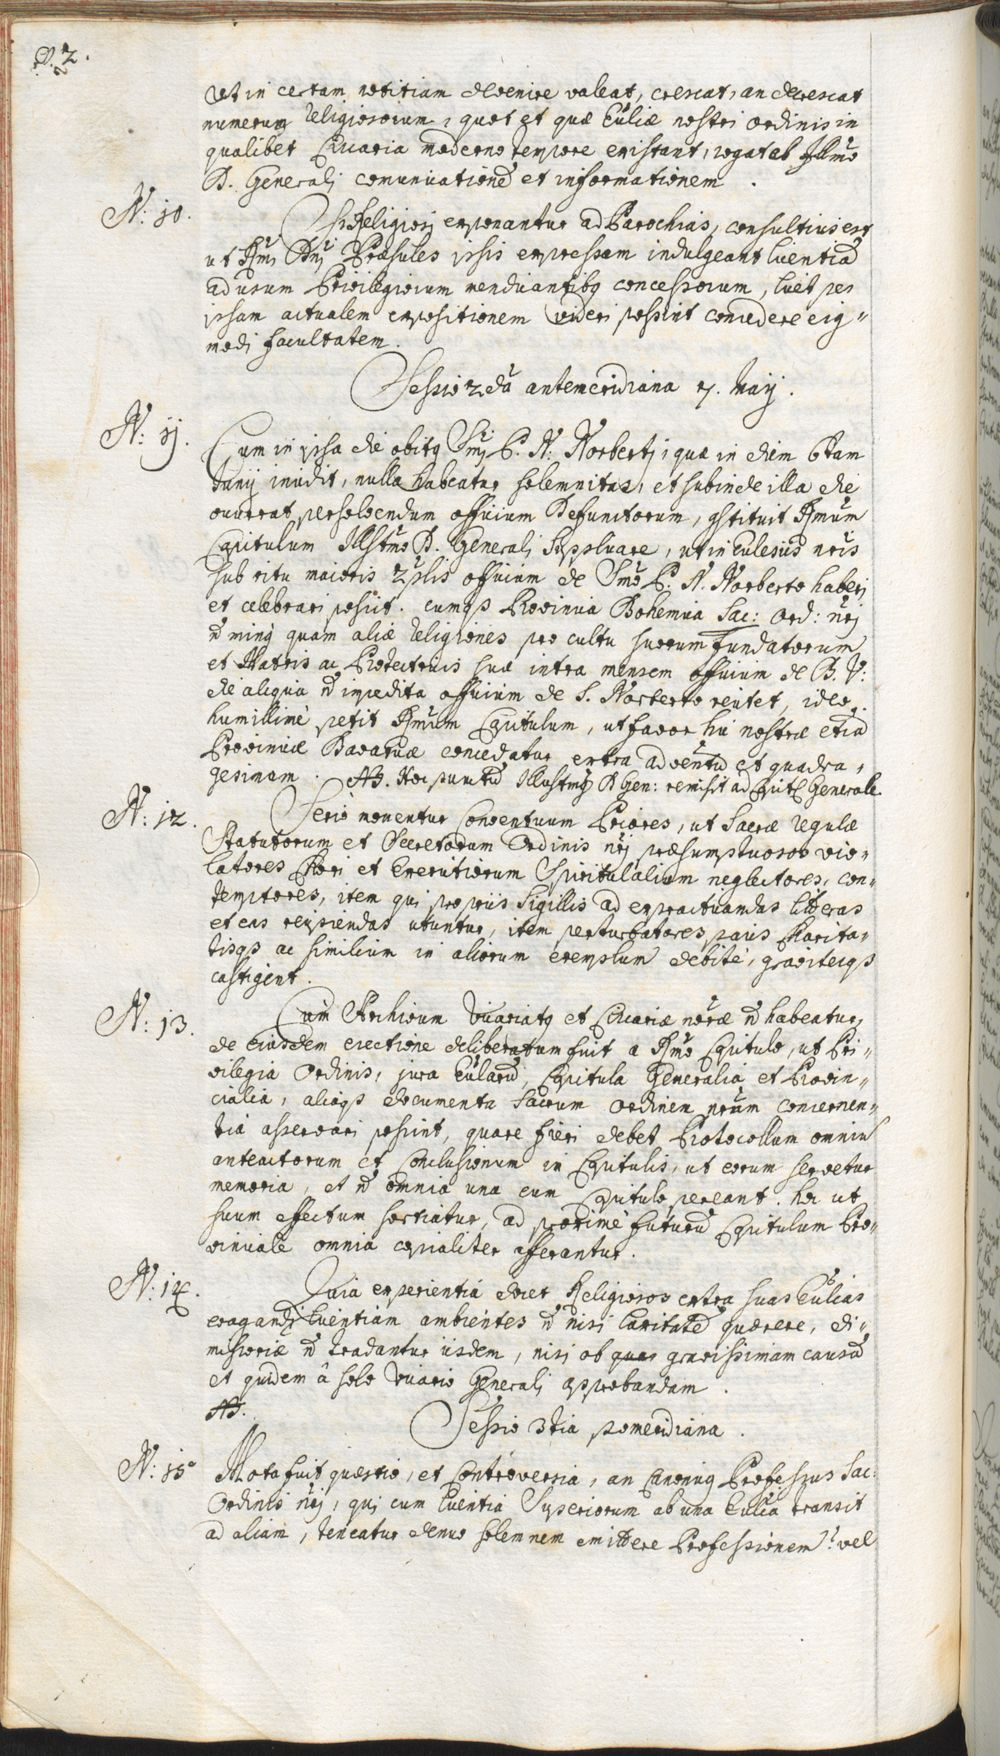 2.
Ut in certam notitiam devenire valeat, crescat, an decrescat
numerus Religiosorum, quot et quæ Ecclîæ nostri Ordinis in
qualibet Circaria moderno tempore existant, rogatab Illmo
D. Generali comunicatione et informationem.
N: 10.
Si Religiosi exponantur ad Parochias, consultius est
ut Rmi Dni Præsules ipsis expressam indulgeant licentiã
ad usum Privilegiorum mendicantibq concessorum, licet per
ipsam actualem expositionem videri possint concedere eig"
modi facultatem.
Sessio 2da antemeridiana 7. Maij.
N: 11.
Cum in ipsa die obitq Smi P. N. Norberti, quæ in diem 6tam
Junij incidit, nulla habeatur solemnitas, et subinde illa die
occurrat persolvendum officium Defunctorum, gstituit Rmum
Capitulum Illstmo D. Generali supplicare, ut in Ecclesiis nris
sub ritu maioris 2plis officium de Smo P. N. Norberto haberi
et celebrari possit. cumqs Provincia Bohemica Sac: Ord: nri
ñ minq quam aliæ Religiones pro cultu suorum Fundatorum
et Matris ac Protectricis suæ intra mensem officium de B. V:
die aliqua ñ impedita officium de S. Norberto recitet, ideo
humillimè petit Rmum Capitulum, ut favor hic nostræ etiã
Provinciæ Bavaricæ concedatur extra adventũ et quadra"
gesimam. Hoc punctũ Illustmq D Gen: remisit ad Capitl Generale
N: 12.
Serio monentur Conventuum Priores, ut Sacræ Regulæ
Statutorum et Decretorum Ordinis nri præsumptuosos vio"
latores Chori et Exercitiorum Spiritualium neglectores, con"
temptores, item qui propriis Sigillis ad expractivandas litteras
et eas recipiendas utuntur, item perturbatores pacis Charita"
tisqs ac similium in aliorum exemplum debitè, graviterqs
castigent.
N: 13.
Cum Archivum Vicariatq et Circariæ nræ ñ habeatur,
de eiusdem erectione deliberatum fuit a Rmo Capitulo, ut Pri"
vilegia Ordinis, jura Ecclarũ, Capitula Generalia et Provin"
cialia, aliaqs documenta Sacrum Ordinem nrum concernen"
tia asservari possint, quare fieri debet Protocollum omniũ
anteactorum et Conclusionum in Capitulis, ut eorum servetur
memoria, et ñ omnia una cum Capitulo pereant. hoc ut
suum effectum sortiatur, ad proximè futurũ Capitulum Pro"
vinciale omnia copialiter afferantur.
N: 14.
Quia experientiâ docet Religiosos extra suas Ecclîas
evagandi licentiam ambientes ñ nisi laxitatẽ quærere, di"
missoriæ ñ tradantur iisdem, nisi ob gravissimam causã
et quidem à solo Vicario Generali approbandam.
Sessio 3tia pomeridiana.
N: 15
Mota fuit quæstio, et controversia, an Canonicq Professus Sac:
Ordinis nri, qui cum licentia Superiorum ab una Ecclîa transit
ad aliam, teneatur denuo solemnem emittere Professionem? vel